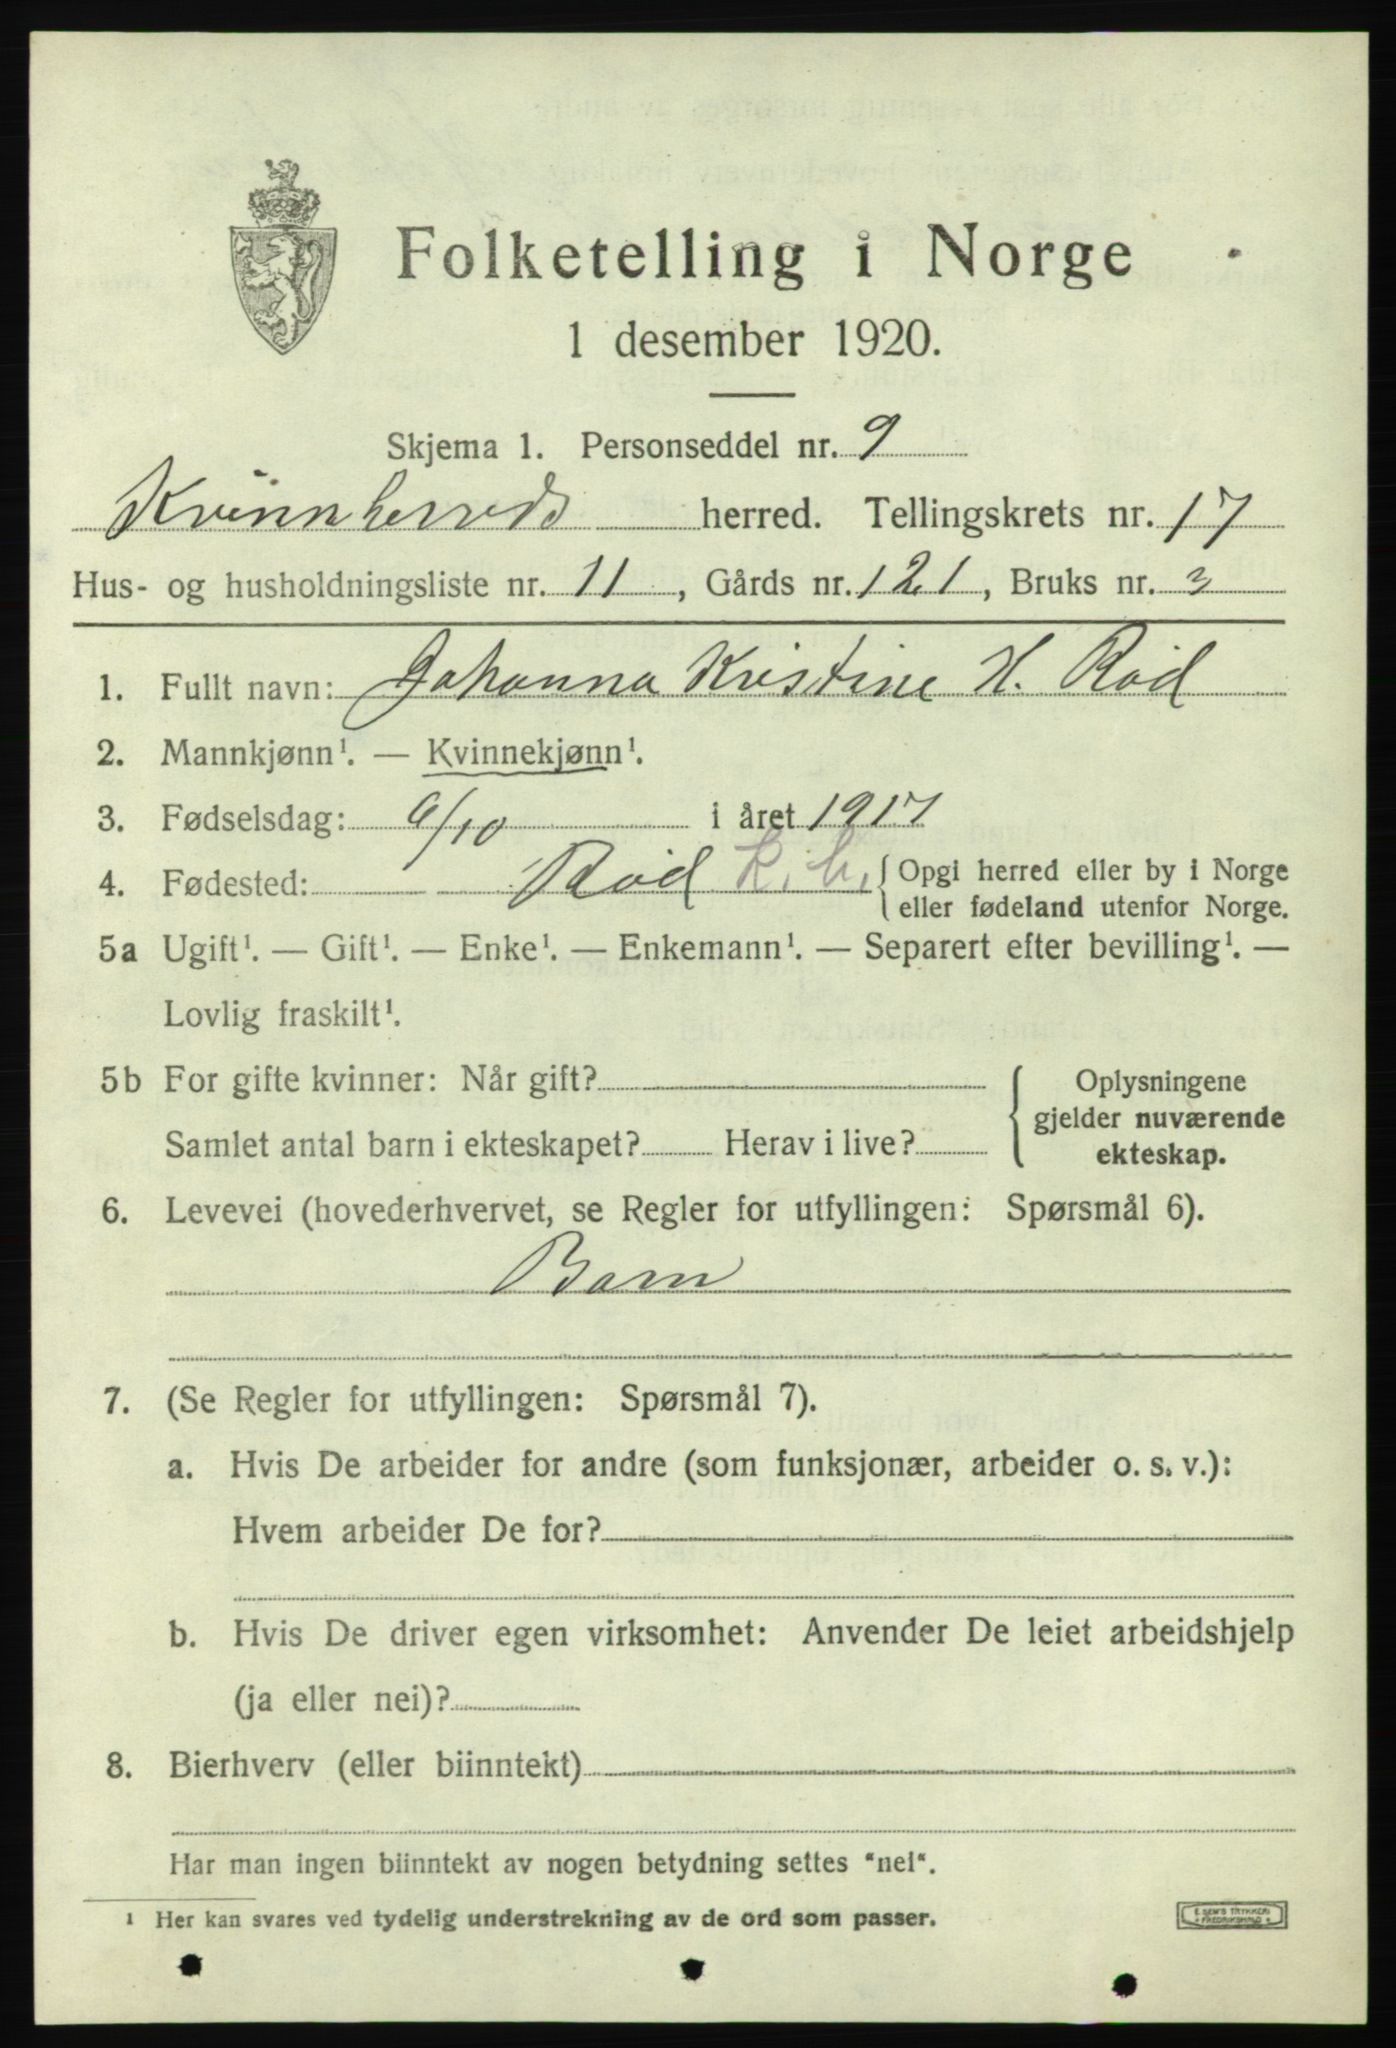 Folketelling i Norge
1 desember 1920.
Skjema 1. Personseddel nr. 9
Kvinnherreds herred. Tellingskrets nr. 17
Hus- og husholdningsliste nr. 11, Gårds nr. 121, Bruks nr. 3
1. Fullt navn: Johanna Kristine H. Röd
2. Mannkjønn¹. — Kvinnekjønn¹.
3. Fødselsdag: 6/10 i året 1917
4. Fødested: Röd { Opgi herred eller by i Norge
eller fødeland utenfor Norge.
5a Ugift¹. — Gift¹. — Enke¹. — Enkemann¹. — Separert efter bevilling¹. —
Lovlig fraskilt¹.
5b For gifte kvinner: Når gift?
Samlet antal barn i ekteskapet? Herav i live?
{ Oplysningene
gjelder nuværende
ekteskap.
6. Levevei (hovederhvervet, se Regler for utfyllingen: Spørsmål 6).
Barn
7. (Se Regler for utfyllingen: Spørsmål 7).
a. Hvis De arbeider for andre (som funksjonær, arbeider o. s. v.):
Hvem arbeider De for?
b. Hvis De driver egen virksomhet: Anvender De leiet arbeidshjelp
(ja eller nei)?
8. Bierhverv (eller biinntekt)
Har man ingen biinntekt av nogen betydning settes "nei".
¹ Her kan svares ved tydelig understrekning av de ord som passer.
E. SEM'S TRYKKERI
FREDRIKSHALD